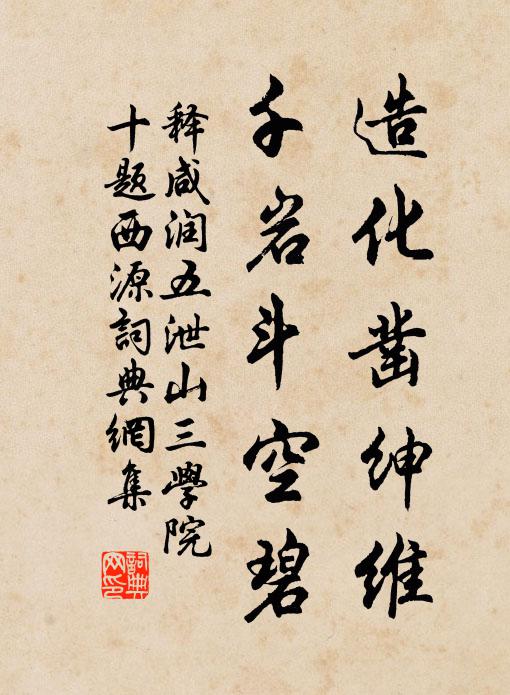 造化凿绅维
千岩斗空碧
释咸润五泄山三學院
十题西源詞典網集
詞典
网印